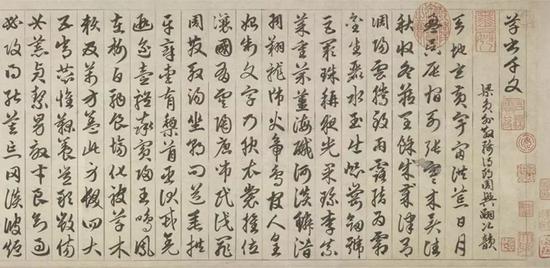 草書千文
梁員外散騎侍郎周興嗣次韻
天地玄黃宇宙洪荒日月
盈昃辰宿列張寒來暑往
秋收冬藏閏餘成歲律呂
調陽雲騰致雨露結為霜
金生麗水玉出崑崗劍號
巨闕珠稱夜光果珍李柰
菜重芥薑海鹹河淡鱗潛
羽翔龍師火帝鳥官人皇
始制文字乃服衣裳推位
讓國有虞陶唐弔民伐罪
周發殷湯坐朝問道垂拱
平章愛育黎首臣伏戎羌
遐邇壹體率賓歸王鳴鳳
在樹白駒食場化被草木
賴及萬方蓋此身髮四大
五常恭惟鞠養豈敢毀傷
女慕貞潔男效才良知過
必改得能莫忘罔談彼短